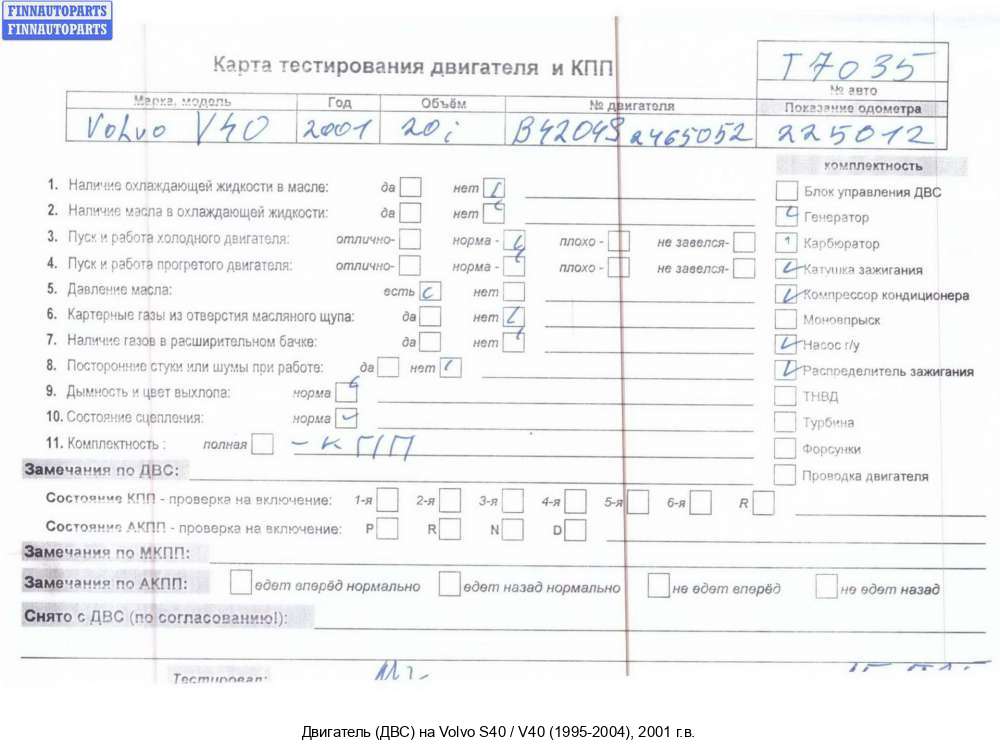 FINNAUTOPARTS
FINNAUTOPARTS
Карта тестирования двигателя и КПП
T7035
№ авто
Марка, модель Год Объём № двигателя Показание одометра
Volvo V40 2001 20i B4204S 2465052 225012
комплектность
1. Наличие охлаждающей жидкости в масле: да нет
Блок управления ДВС
2. Наличие масла в охлаждающей жидкости: да нет
Генератор
3. Пуск и работа холодного двигателя: отлично- норма - плохо - не завелся-
Карбюратор
4. Пуск и работа прогретого двигателя: отлично- норма - плохо - не завелся-
Катушка зажигания
5. Давление масла: есть нет
Компрессор кондиционера
6. Картерные газы из отверстия масляного щупа: да нет
Моновпрыск
7. Наличие газов в расширительном бачке: да нет
Насос г/у
8. Посторонние стуки или шумы при работе: да нет
Распределитель зажигания
9. Дымность и цвет выхлопа: норма
ТНВД
10. Состояние сцепления: норма
Турбина
11. Комплектность : полная - КПП
Форсунки
Замечания по ДВС:
Проводка двигателя
Состояние КПП - проверка на включение: 1-я 2-я 3-я 4-я 5-я 6-я R
Состояние АКПП - проверка на включение: P R N D
Замечания по МКПП:
Замечания по АКПП: едет вперёд нормально едет назад нормально не едет вперёд не едет назад
Снято с ДВС (по согласованию!):
Тестировал:
Двигатель (ДВС) на Volvo S40 / V40 (1995-2004), 2001 г.в.